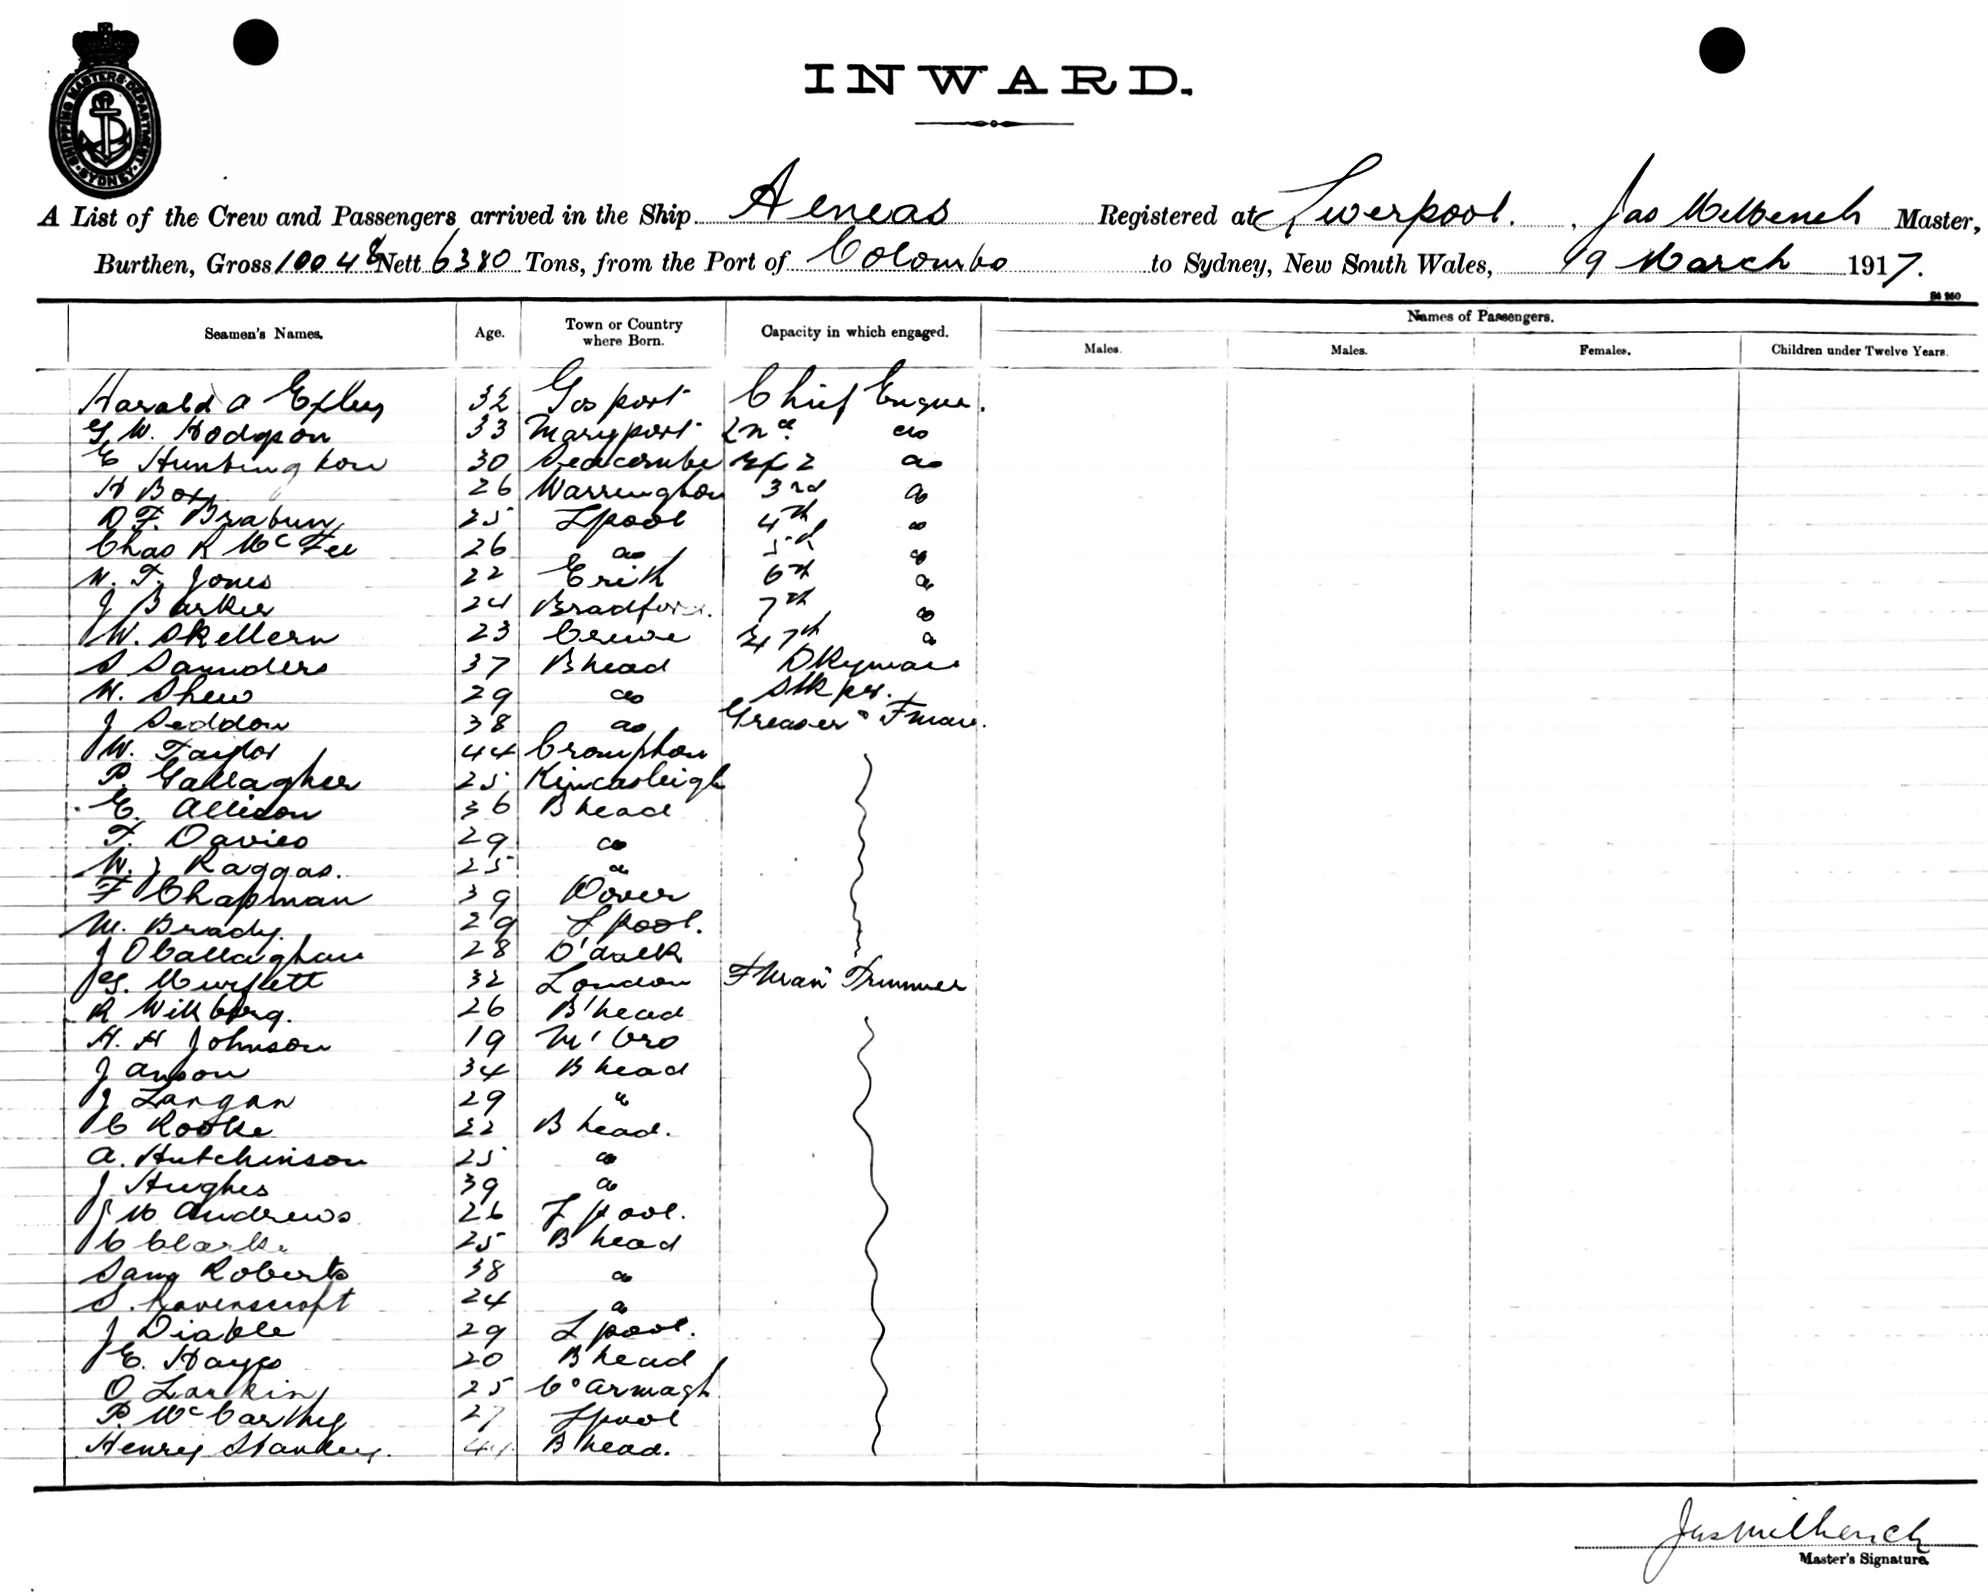 SHIPPING MASTERS DEPARTMENT SYDNEY
INWARD.
A List of the Crew and Passengers arrived in the Ship Aeneas Registered at Liverpool. Jas Milbench Master,
Burthen, Gross 10048 Nett 6380 Tons, from the Port of Colombo to Sydney, New South Wales, 19 March 1917.
Seamen's Names. Age. Town or Country where Born. Capacity in which engaged. Names of Passengers.
Males. Males. Females. Children under Twelve Years.
Harald A Exley 32 Gosport Chief Engne.
G W. Hodgson 33 Maryport 2nd do
E Huntington 30 Seacombe Ex 2 do
H Box 26 Warrington 3rd do
D F. Brabun 25 Lpool 4th do
Chas R McFee 26 do 5th do
W. T. Jones 22 Erith 6th do
J Barker 24 Bradford. 7th do
W. Skellern 23 Crewe Ex 7th do
S Saunders 37 Bhead Dkyman
W. Shew 29 do Stkpr.
J Seddon 38 do Greaser & Fman.
W. Taylor 44 Crompton
P. Gallagher 25 Kincasleigh
E. Allison 36 Bhead
T. Davies 29 do
W. J Raggas. 25 do
F Chapman 39 Dover
M. Brady. 29 Lpool.
J OCallaghan 28 D'dalk
G. Murfett 32 London Fman Trimmer
R 26 B'head
H. H Johnson 19 M'bro
J Anson 34 Bhead
J Langan 29 "
C Rooke 22 B head.
A. Hutchinson 25 do
J Hughes 39 do
J W Andrews 26 Lpool.
C Clarke 25 Bhead
Saml Roberts 38 do
S. Ravenscroft 24 do
J Diable 29 Lpool.
E. Hayes 20 Bhead
O Larkin 25 Co Armagh
P. McCarthy 27 Lpool
Henry Standey. B head.
Jas Milbench
Master's Signature.